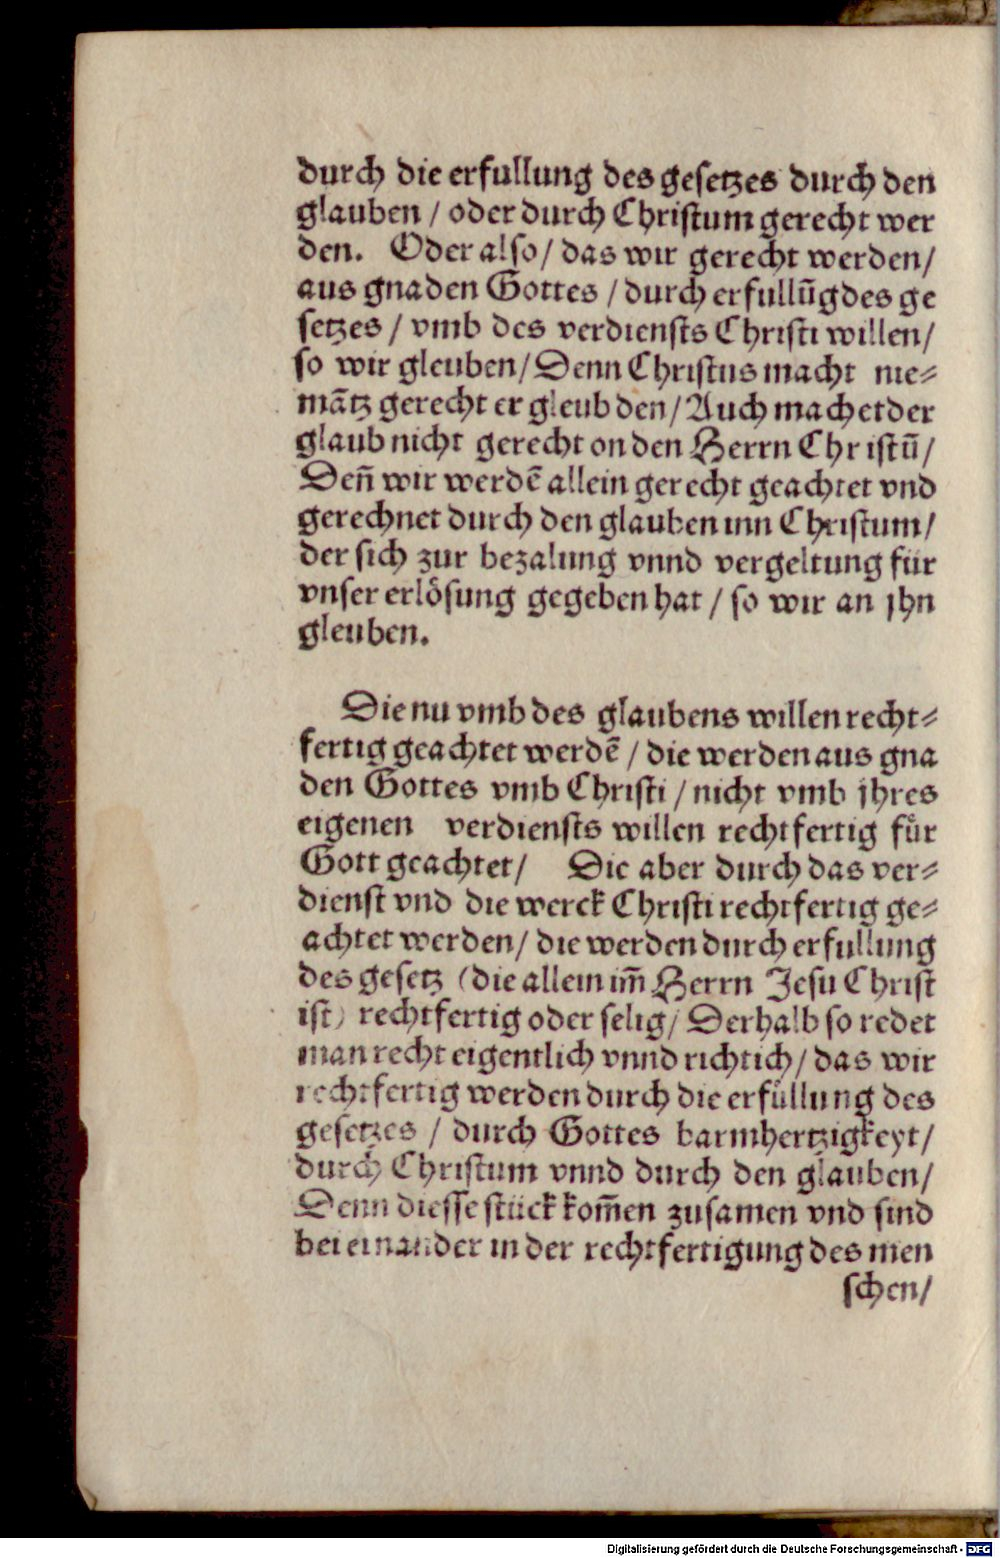 durch die erfullung des gesetzes durch den
glauben / oder durch Christum gerecht wer
den. Oder also / das wir gerecht werden /
aus gnaden Gottes / durch erfullūg des ge
setzes / vmb des verdiensts Christi willen /
so wir gleuben / Denn Christus macht nie⸗
mātz gerecht er gleub den / Auch machet der
glaub nicht gerecht on den Herrn Christū /
Deñ wir werdē allein gerecht geachtet vnd
gerechnet durch den glauben inn Christum /
der sich zur bezalung vnnd vergeltung für
vnser erlösung gegeben hat / so wir an jhn
gleuben.
Die nu vmb des glaubens willen recht⸗
fertig geachtet werdē / die werden aus gna
den Gottes vmb Christi / nicht vmb jhres
eigenen verdiensts willen rechtfertig für
Gott geachtet / Die aber durch das ver⸗
dienst vnd die werck Christi rechtfertig ge⸗
achtet werden / die werden durch erfullung
des gesetz (die allein im̄ Herrn Jesu Christ
ist) rechtfertig oder selig / Derhalb so redet
man recht eigentlich vnnd richtich / das wir
rechtfertig werden durch die erfüllung des
gesetzes / durch Gottes barmhertzigkeyt /
durch Christum vnnd durch den glauben /
Denn diesse stück kom̄en zusamen vnd sind
bei einander in der rechtfertigung des men
schen /
Digitalisierung gefördert durch die Deutsche Forschungsgemeinschaft - DFG